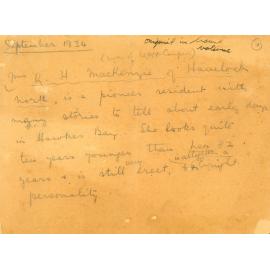 September 1934
original in brown
volume
Mrs R. H. Mackenzie of Havelock
north, is a pioneer resident with
many stories to tell about early days
in Hawkes Bay. She looks quite
ten years younger than her 82
years & is still very erect, & bright
personality